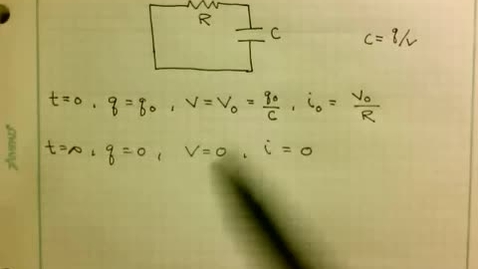 R
C
C = q/v
t=0, q=q₀, V=V₀=q₀/C, i₀=V₀/R
t=∞, q=0, V=0, i=0